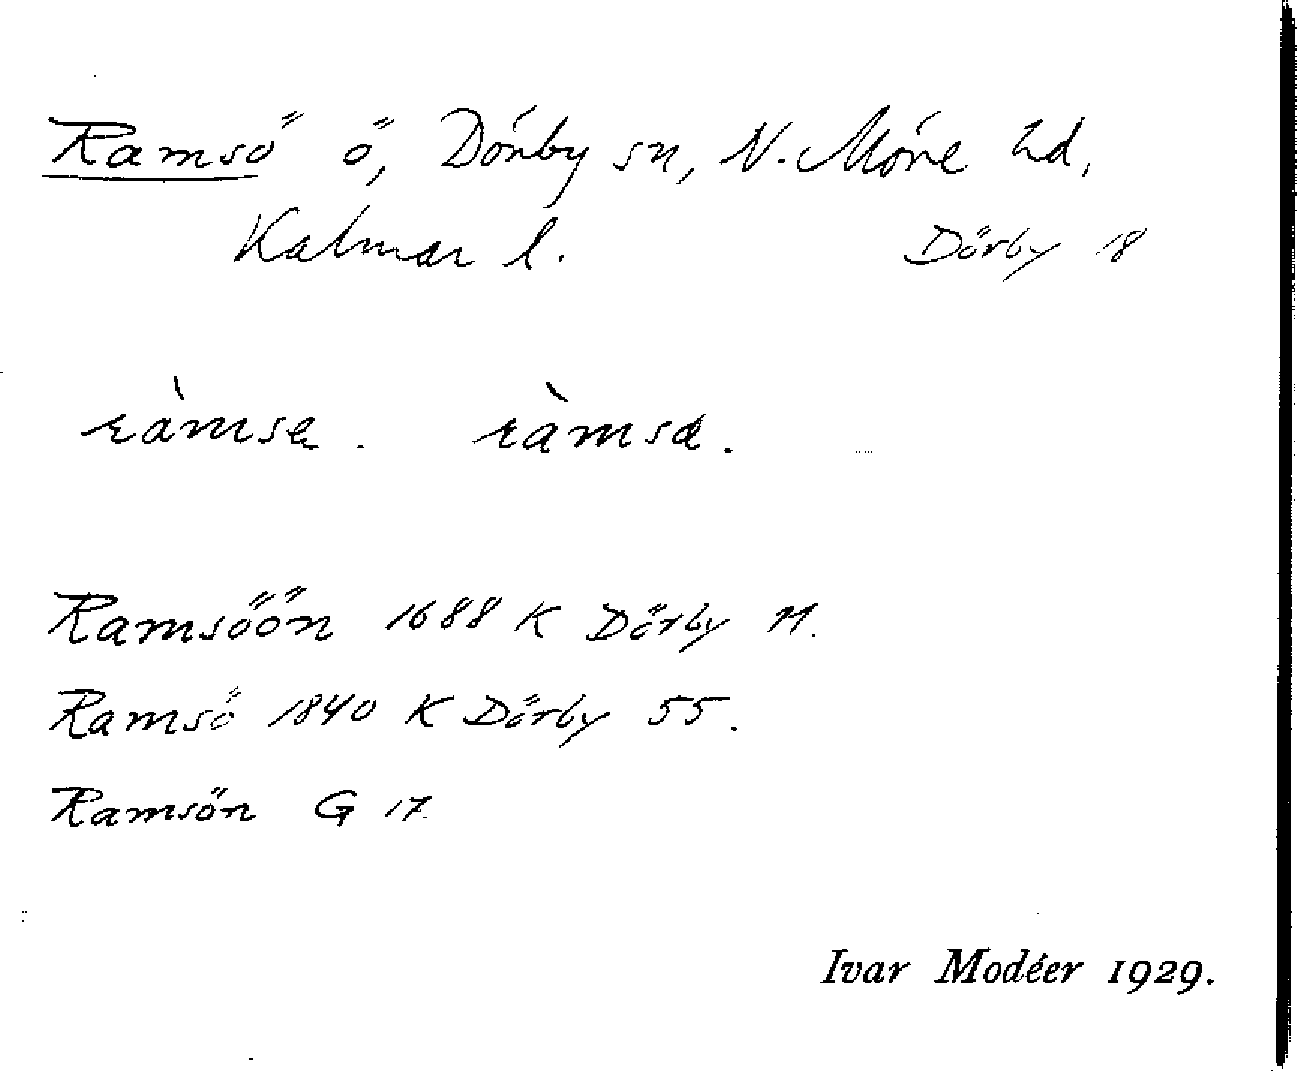 Ramsö ö, Dörby sn, N. Möre hd,
Kalmar l. Dörby 18
ràmse. ràmsa.
Ramsöön 1688 K Dörby 11.
Ramsö 1840 K Dörby 55.
Ramsön G 17
Ivar Modéer 1929.